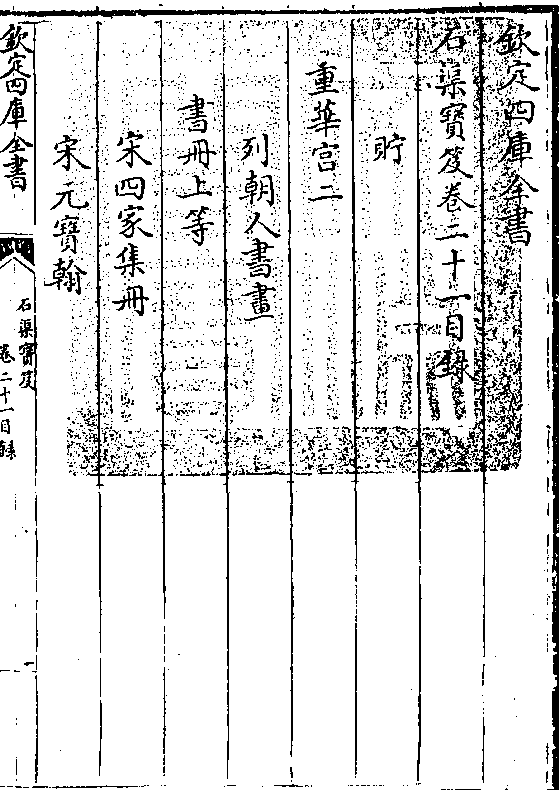 欽定四庫全書
石渠寶笈卷二十一目錄
貯
重華宫二
列朝人書畫
書冊上等
宋四家集冊
宋元寶翰
欽定四庫全書
石渠寶笈
卷二十一目錄